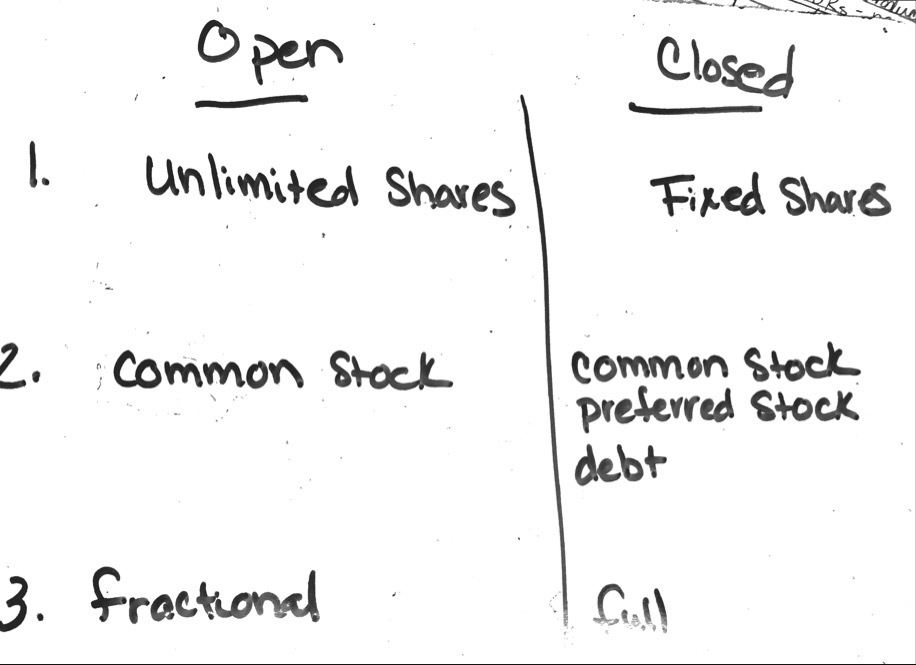 Open Closed
1. Unlimited Shares Fixed Shares
2. Common Stock common Stock
preferred Stock
debt
3. fractional full